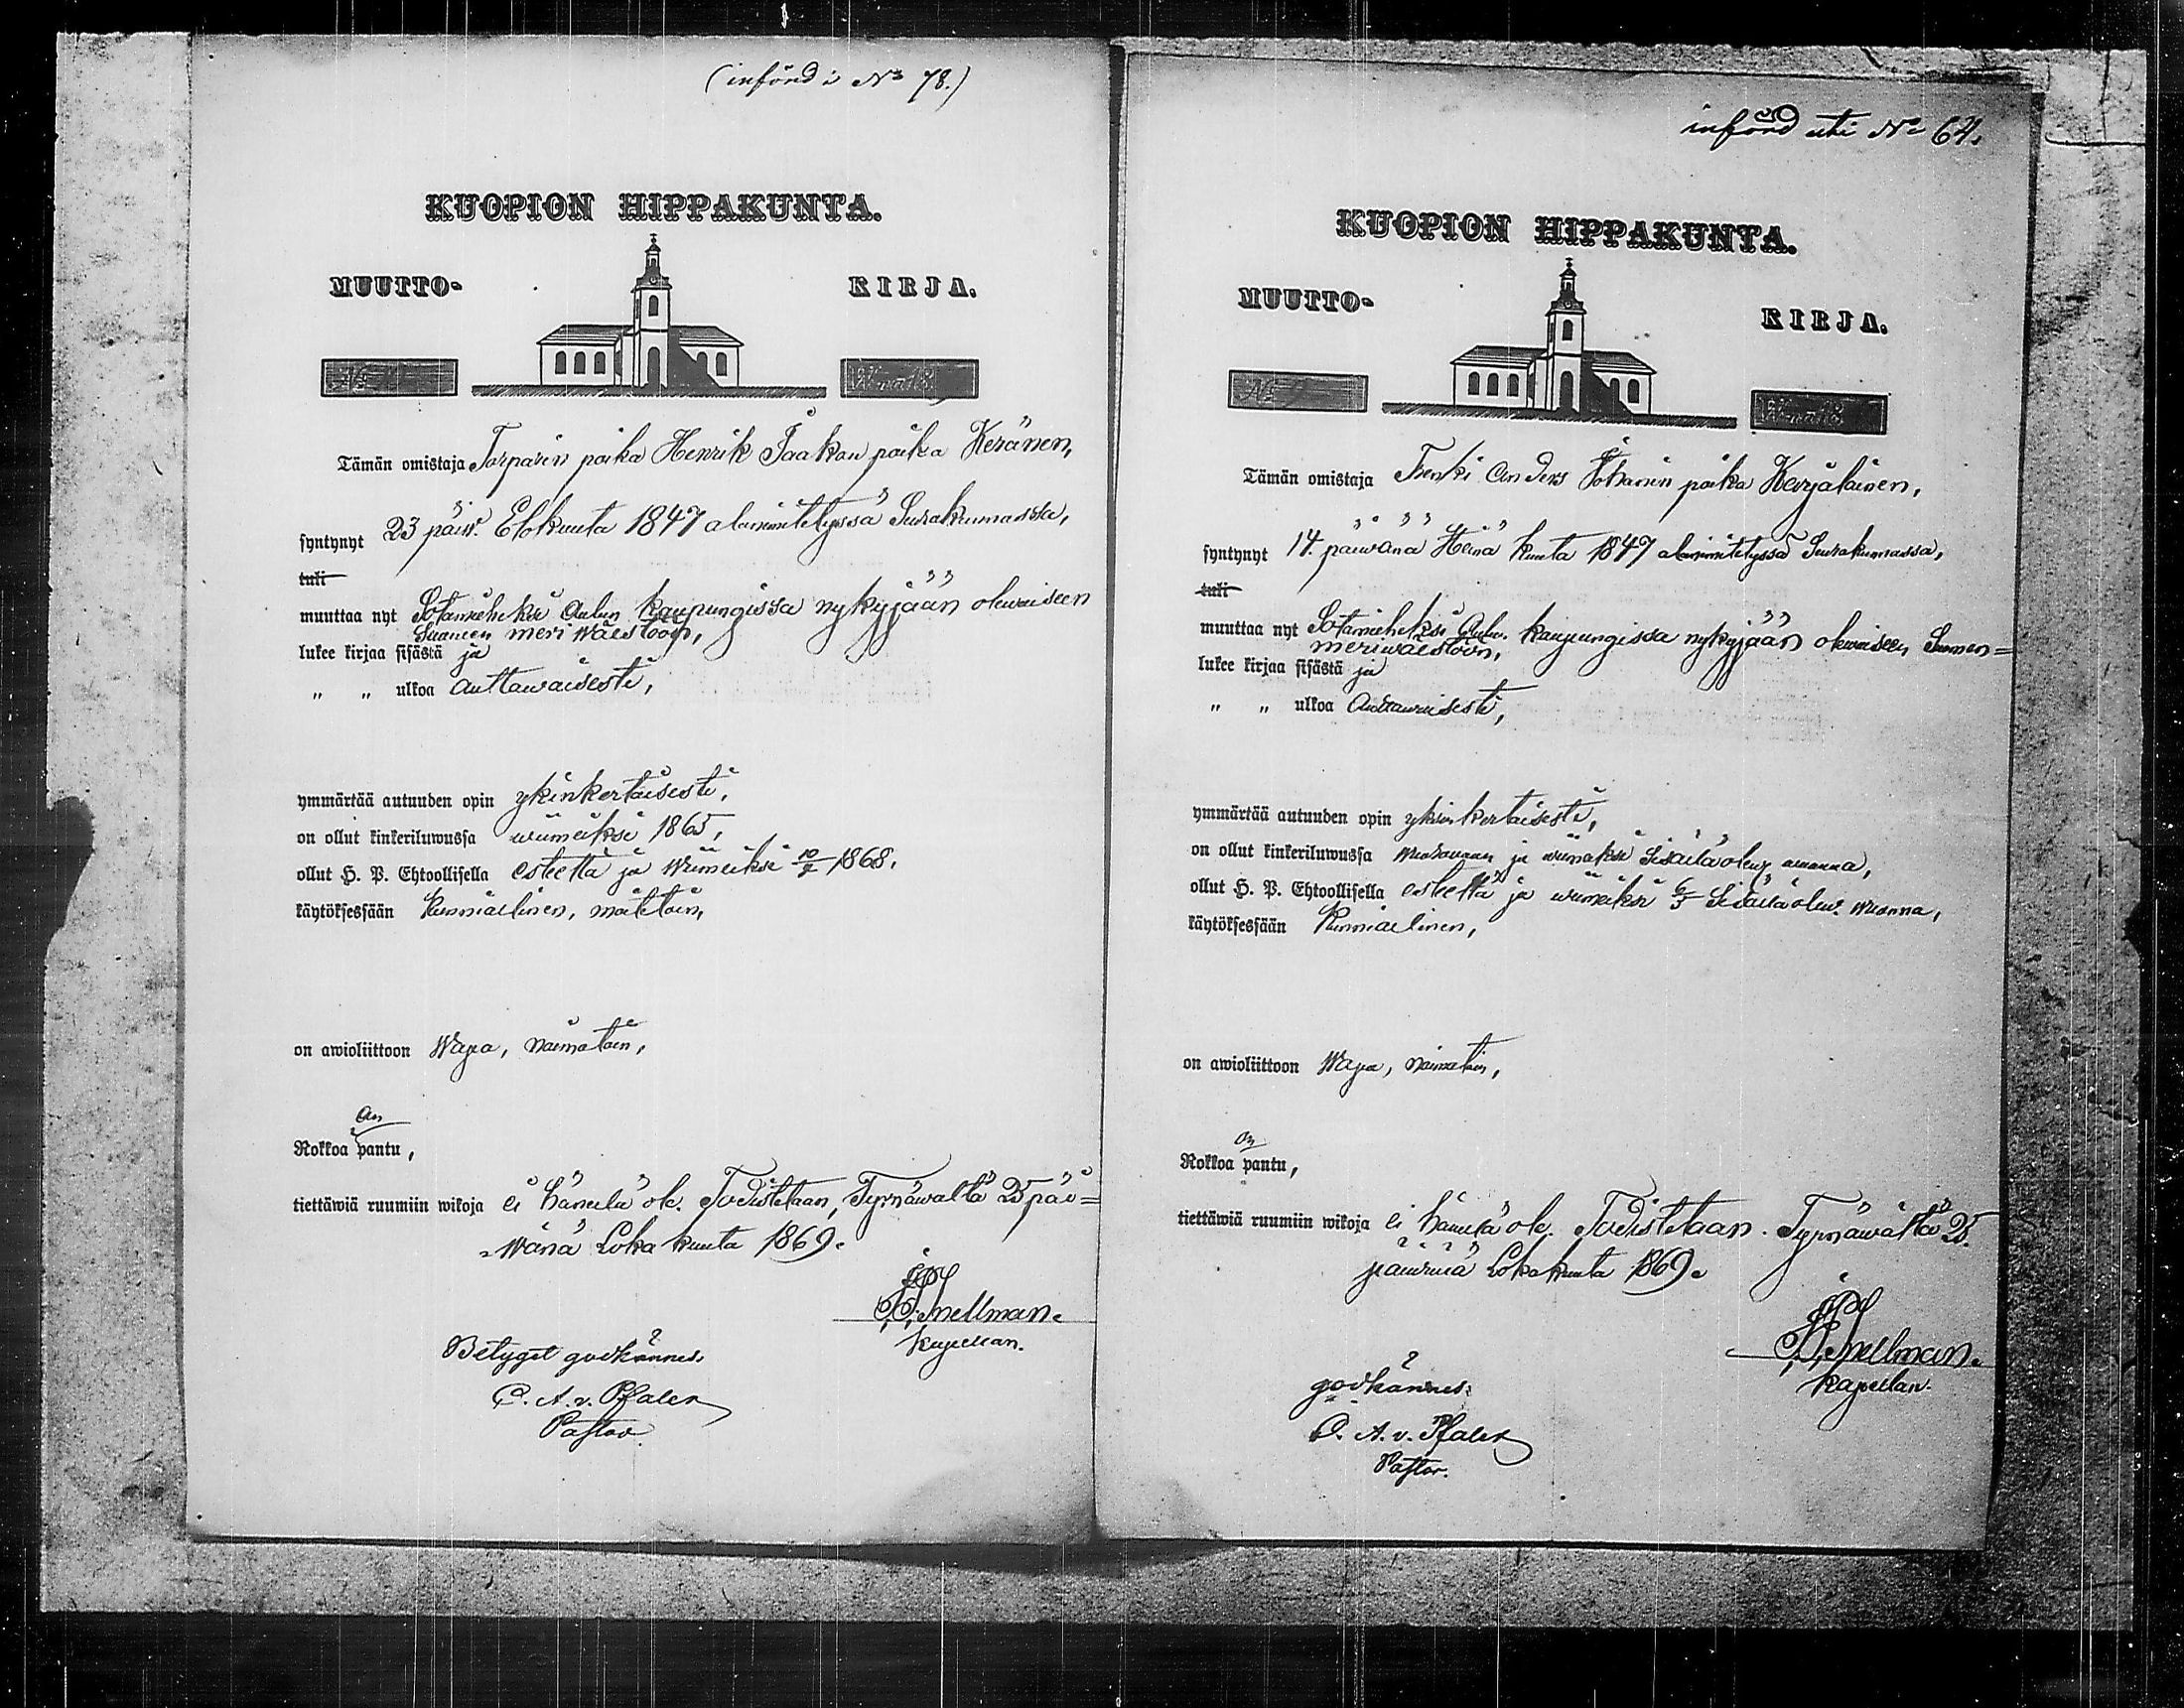 (införd i No 78.)
KUOPION HIPPAKUNTA.
MUUTTO- KIRJA.
No
Tämän omistaja Torparin poika Henrik Jaakon poika Keränen,
syntynyt 23 päiw. Elokuuta 1847 alanimitetyssä Seurakunnassa,
tuli
muuttaa nyt Sotamieheksi Oulun kaupungissa nykyjään olewaiseen
Suomen meriwäestöön,
lukee kirjaa sisästä ja
" " ulkoa auttawaisesti,
ymmärtää autuuden opin ykinkertaisesti,
on ollut kinkeriluwussa wiimeiksi 1865,
ollut H. P. Ehtoollisella esteettä ja wiimeiksi 1868,
käytöksessään kunniallinen, moitetoin,
on awioliittoon Wapa, naimatoin,
on
Rokkoa pantu,
tiettäwiä ruumiin wikoja ei hänellä ole. Todistetaan, Tyrnäwältä 25 päi=
=wänä Loka kuuta 1869.
Snellman.
Kapellan.
Betyget godkännes.
C. A. v. Pfaler
Pastor.
införd uti No 64.
KUOPION HIPPAKUNTA.
MUUTTO- KIRJA.
No
Tämän omistaja Trenki Anders Johanin poika Karjalainen,
syntynyt 14. päiwänä Heinä kuuta 1847 alanimitetyssä Seurakunnassa,
tuli
muuttaa nyt Sotamieheksi Oulu. kaupungissa nykyjään olewaiseen Suomen=
meriwäestöön,
lukee kirjaa sisästä ja
" " ulkoa Auttawaisesti,
ymmärtää autuuden opin yksinkertaisesti,
on ollut kinkeriluwussa ja wiimeksi Sisällä olew. wuonna,
ollut H. P. Ehtoollisella esteettä ja wiimeiksi 6/5 Sisällä olew. wuonna,
käytöksessään Kunniallinen,
on awioliittoon Wapa, naimatoin,
on
Rokkoa pantu,
tiettäwiä ruumiin wikoja ei hänellä ole. Todistetaan. Tyrnäwältä 25.
päiwänä Lokakuuta 1869.
Snellman.
Kapellan.
godkännes.
C. A. v. Pfaler
Pastor.